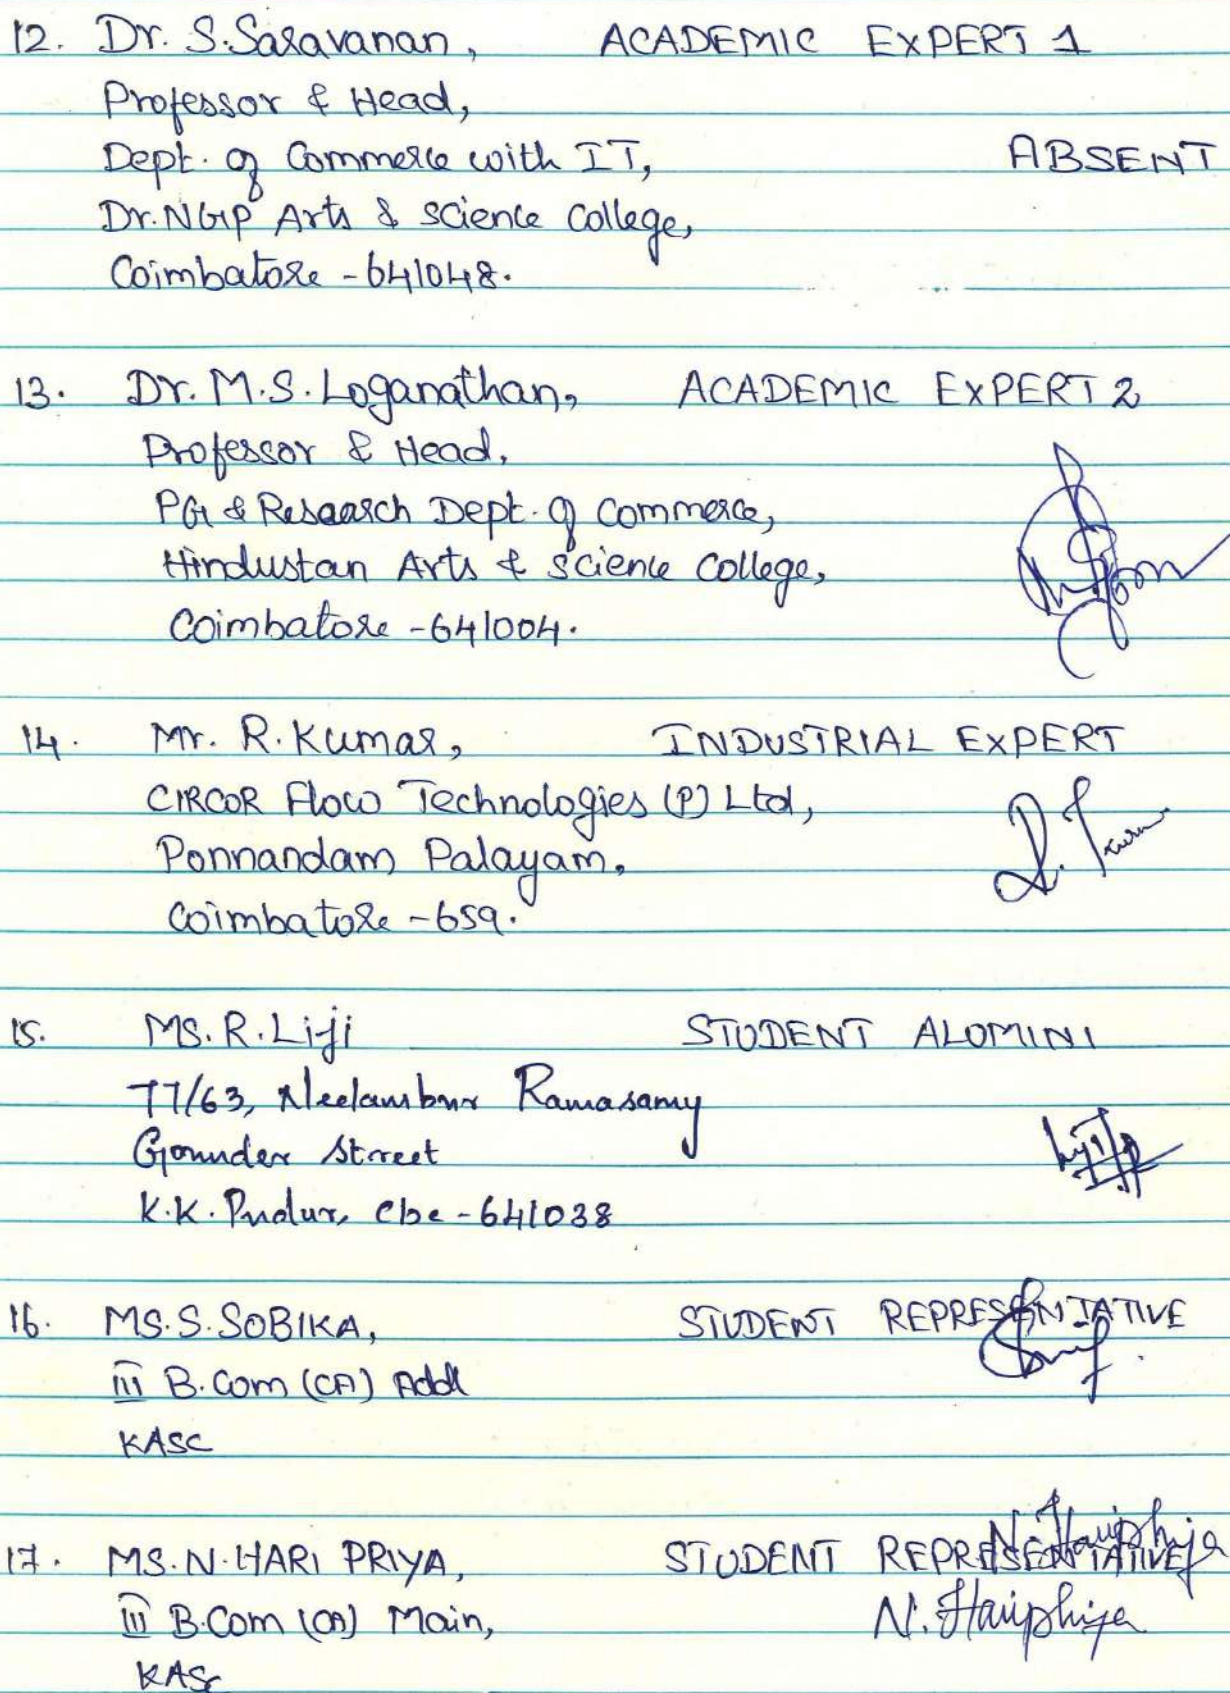 12. Dr. S. Saravanan, ACADEMIC EXPERT 1
Professor & Head,
Dept. of Commerce with IT, ABSENT
Dr. NGP Arts & Science College,
Coimbatore - 641048.
13. Dr. M.S. Loganathan, ACADEMIC EXPERT 2
Professor & Head,
PG & Research Dept. of Commerce,
Hindustan Arts & Science College,
Coimbatore - 641004.
14. Mr. R. Kumar, INDUSTRIAL EXPERT
CIRCOR Flow Technologies (P) Ltd,
Ponnandam Palayam,
Coimbatore - 659.
15. MS. R. Liji STUDENT ALOMINI
77/63, Neelambur Ramasamy
Gounder Street
K.K. Pudur, Cbe - 641038
16. MS. S. SOBIKA, STUDENT REPRESENTATIVE
III B.Com (CA) Addl
KASC
17. MS. N. HARI PRIYA, STUDENT REPRESENTATIVE
III B.Com (CA) Main, N. Haripriya
KASC